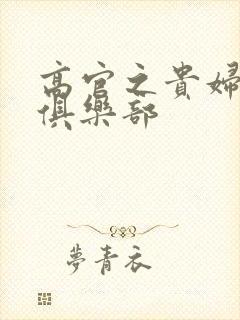 高官之貴婦
俱樂部
夢青衣